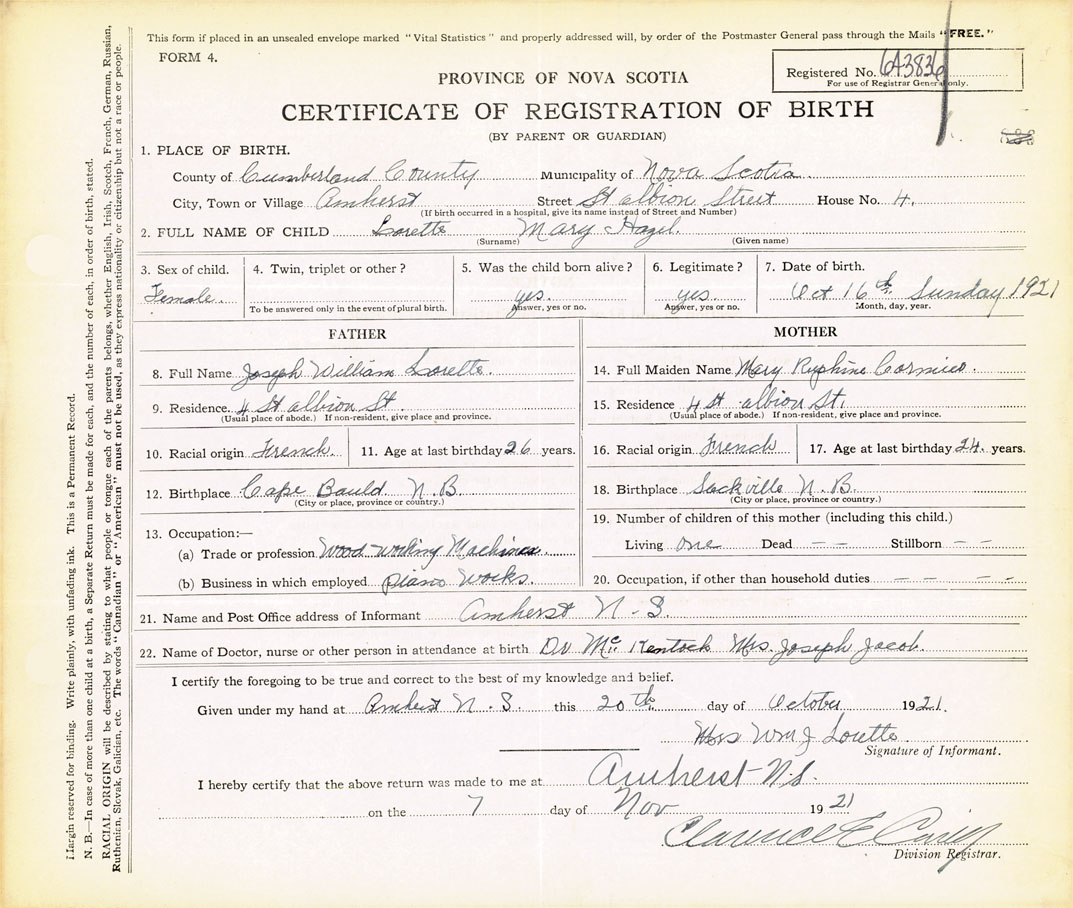 This form if placed in an unsealed envelope marked "Vital Statistics" and properly addressed will, by order of the Postmaster General pass through the Mails "FREE."
FORM 4.
Registered No. 643836
For use of Registrar General only.
PROVINCE OF NOVA SCOTIA
CERTIFICATE OF REGISTRATION OF BIRTH
(BY PARENT OR GUARDIAN)
1. PLACE OF BIRTH.
County of Cumberland County Municipality of Nova Scotia
City, Town or Village Amherst Street St albion Street House No. 4.
(If birth occurred in a hospital, give its name instead of Street and Number)
2. FULL NAME OF CHILD Lorette Mary Hazel.
(Surname) (Given name)
3. Sex of child. 4. Twin, triplet or other? 5. Was the child born alive? 6. Legitimate? 7. Date of birth.
Female. yes. yes. Oct 16th Sunday 1921
To be answered only in the event of plural birth. Answer, yes or no. Answer, yes or no. Month, day, year.
FATHER
8. Full Name Joseph William Lorette.
9. Residence. 4 St albion St.
(Usual place of abode.) If non-resident, give place and province.
10. Racial origin French. 11. Age at last birthday 26 years.
12. Birthplace Cape Bauld. N.B.
(City or place, province or country.)
13. Occupation:—
(a) Trade or profession Wood-working Machines
(b) Business in which employed piano works.
MOTHER
14. Full Maiden Name Mary
15. Residence 4 St albion St.
(Usual place of abode.) If non-resident, give place and province.
16. Racial origin French 17. Age at last birthday 24. years.
18. Birthplace Sackville N.B.
(City or place, province or country.)
19. Number of children of this mother (including this child.)
Living one Dead — — Stillborn — —
20. Occupation, if other than household duties — — — —
21. Name and Post Office address of Informant Amherst N.S.
22. Name of Doctor, nurse or other person in attendance at birth Dr Mrs. Joseph Jacob.
I certify the foregoing to be true and correct to the best of my knowledge and belief.
Given under my hand at Amherst N.S. this 20th day of October 1921.
Mrs Wm J Lorette
Signature of Informant.
I hereby certify that the above return was made to me at Amherst N.S.
on the 7 day of Nov 1921
Clarence E
Division Registrar.
Margin reserved for binding. Write plainly, with unfading ink. This is a Permanent Record.
N. B.—In case of more than one child at a birth, a Separate Return must be made for each, and the number of each, in order of birth, stated.
RACIAL ORIGIN will be described by stating to what people or tongue each of the parents belongs, whether English, Irish, Scotch, French, German, Russian,
Ruthenian, Slovak, Galician, etc. The words "Canadian" or "American" must not be used, as they express nationality or citizenship but not a race or people.